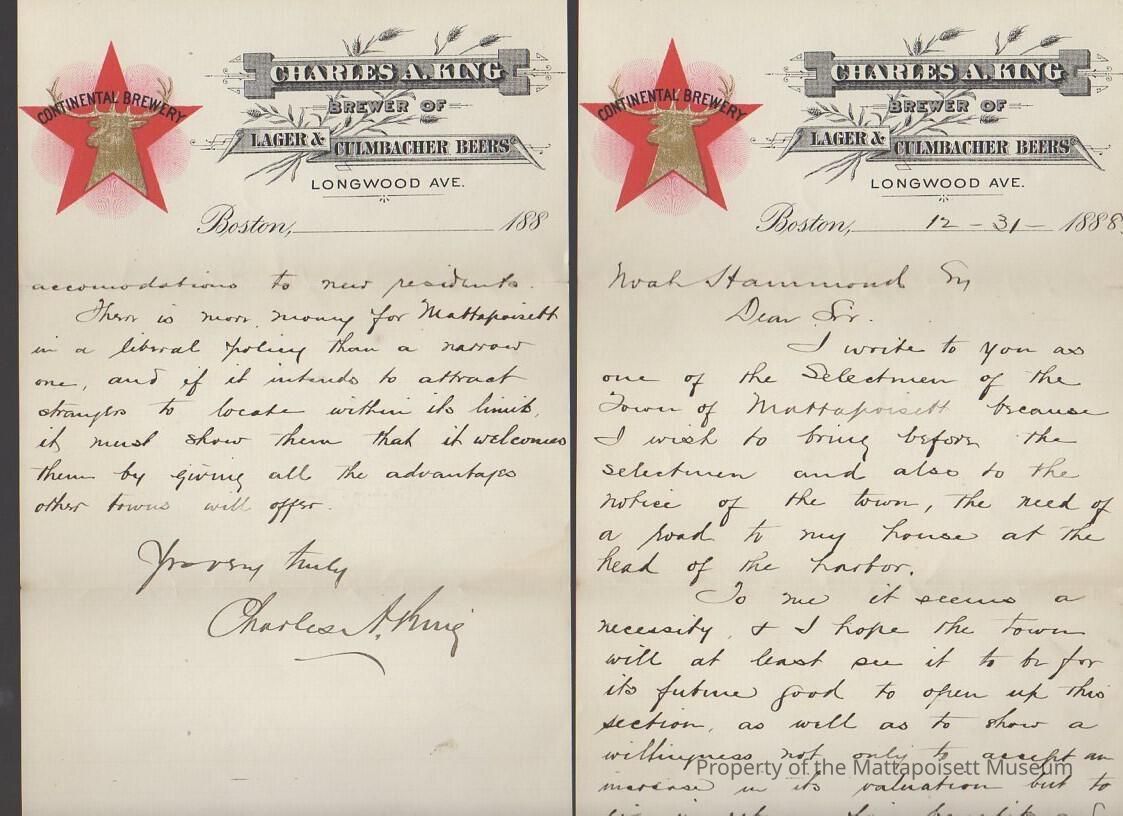 CONTINENTAL BREWERY
CHARLES A. KING
BREWER OF
LAGER & CULMBACHER BEERS
LONGWOOD AVE.
Boston, 188
accomodations to new residents.
There is more money for Mattapoisett
in a liberal policy than a narrow
one, and if it intends to attract
strangers to locate within its limits,
it must show them that it welcomes
them by giving all the advantages
other towns will offer.
Yrs very truly
Charles A. King
CONTINENTAL BREWERY
CHARLES A. KING
BREWER OF
LAGER & CULMBACHER BEERS
LONGWOOD AVE.
Boston, 12-31-1888
Noah Hammond Esq
Dear Sir.
I write to you as
one of the Selectmen of the
Town of Mattapoisett because
I wish to bring before the
selectmen and also to the
notice of the town, the need of
a road to my house at the
head of the harbor.
To me it seems a
necessity, & I hope the town
will at least see it to be for
its future good to open up this
section, as well as to show a
willingness not only to accept an
increase in its valuation but to
Property of the Mattapoisett Museum